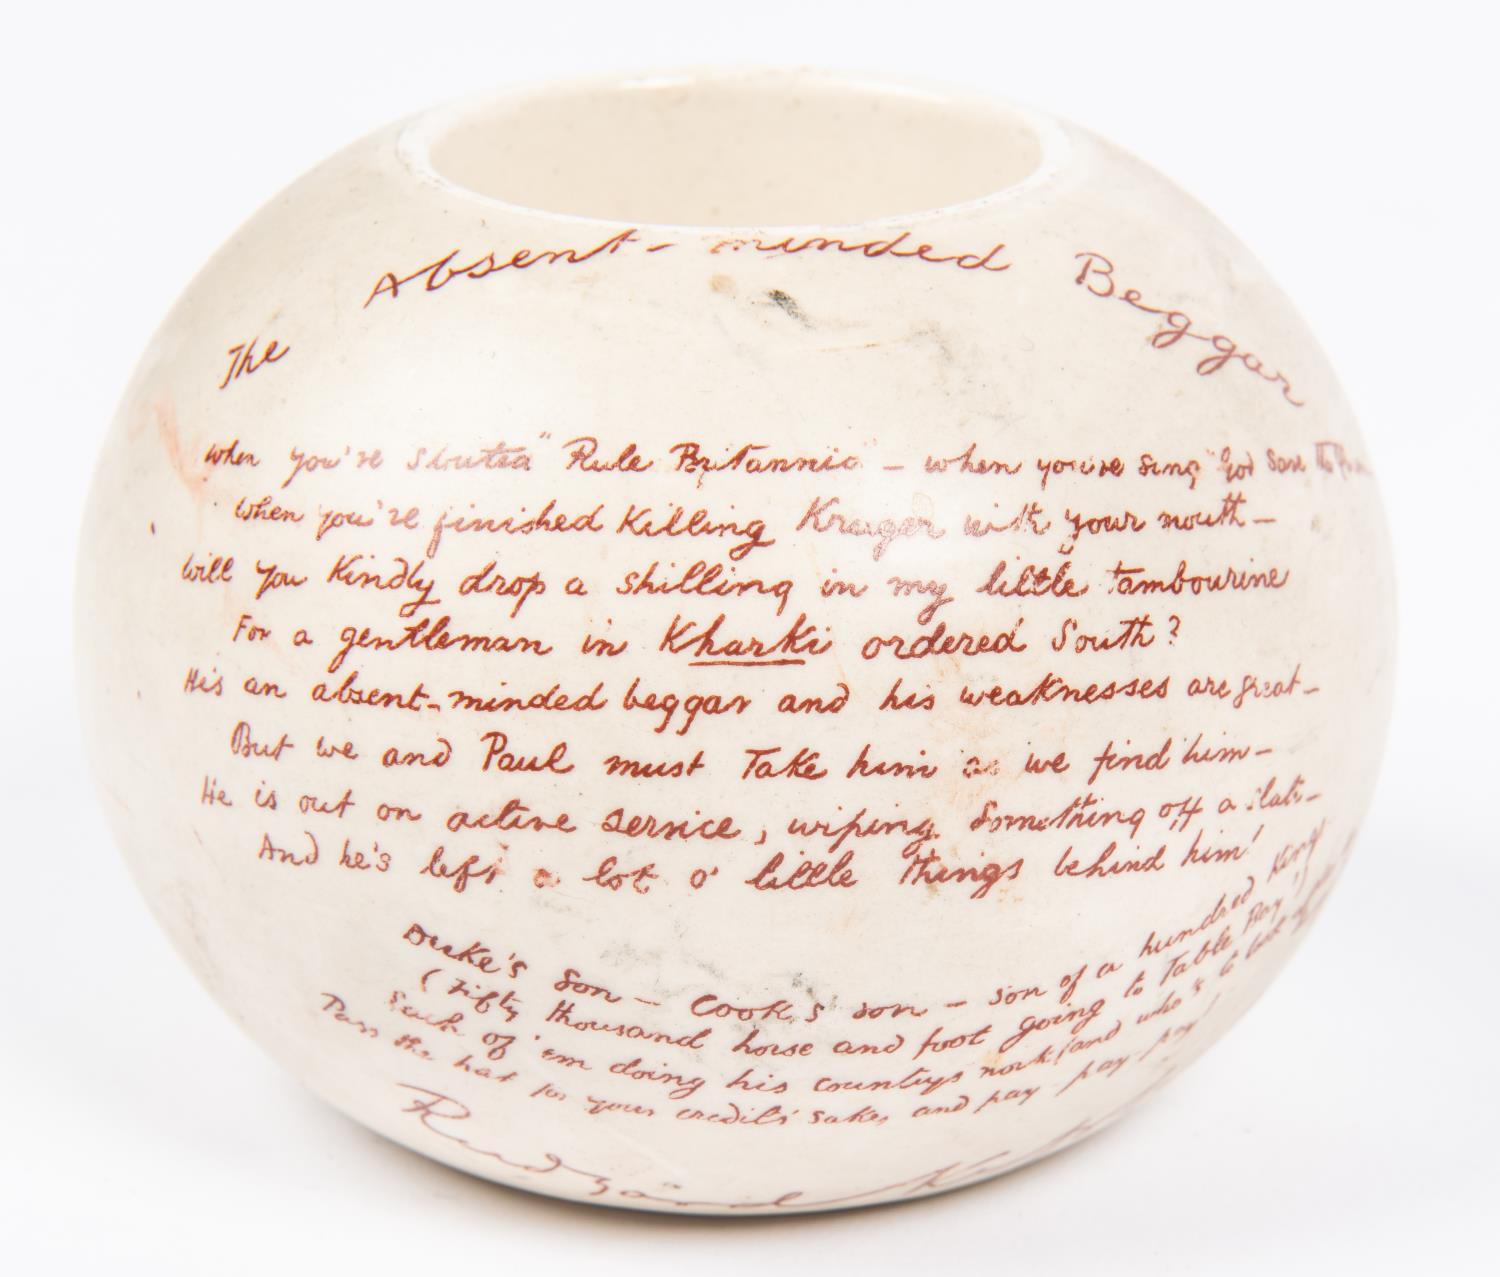 The Absent-minded Beggar
When you've shouted "Rule Britannia" — when you've sung "God Save the
When you've finished Killing Kruger with your mouth —
Will you Kindly drop a shilling in my little tambourine
For a gentleman in Kharki ordered South?
He's an absent-minded beggar and his weaknesses are great —
But we and Paul must Take him as we find him —
He is out on active service, wiping something off a slate —
And he's left a lot o' little things behind him!
Duke's son — Cook's son — son of a hundred Kings
(Fifty thousand horse and foot going to Table Bay!)
Each of 'em doing his country's work (and who's to look
Pass the hat for your credit's sake, and pay — pay — pay!
Rudyard Kipling